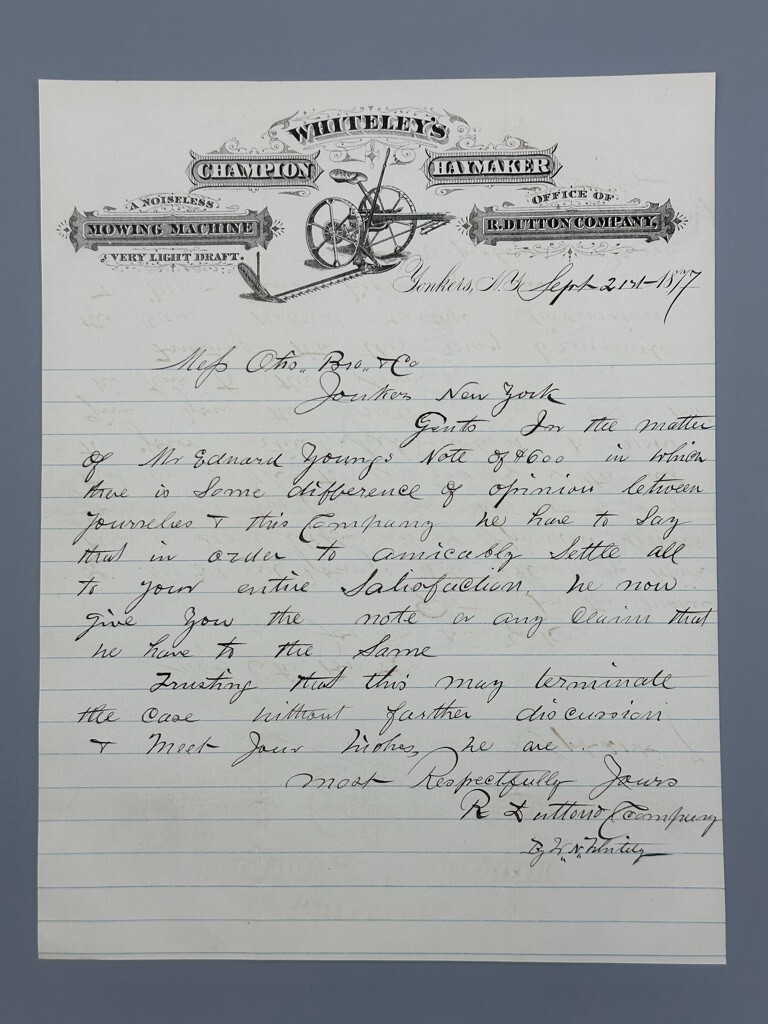 WHITELEY'S
CHAMPION HAYMAKER
A NOISELESS
MOWING MACHINE
OF VERY LIGHT DRAFT.
OFFICE OF
R. DUTTON COMPANY,
Yonkers, N.Y. Sept 21st 1877
Mess Otis Bro & Co
Yonkers New York
Gents In the matter
of Mr Edward Youngs Note of $600 in which
there is Some difference of opinion between
yourselves & this Company we have to Say
that in order to amicably Settle all
to your entire Satisfaction, we now
give you the note or any claim that
we have to the Same
Trusting that this may terminate
the case without further discussion
& Meet your wishes, we are
most Respectfully Yours
R Dutton Company
By W. N. Whitely